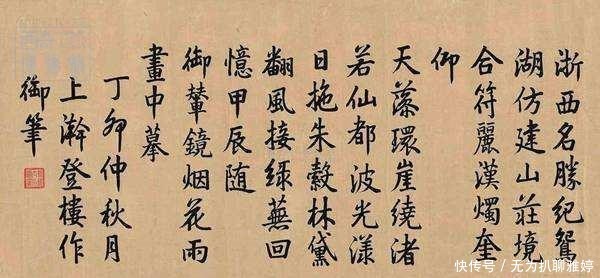 浙西名勝紀鴛
湖仿建山莊境
合符麗漢燭奎
仰
天藻環崖繞渚
若仙都波光漾
日拖朱縠林黛
翻風接綠蕪回
憶甲辰隨
御輦鏡烟花雨
畫中摹
丁卯仲秋月
上澣登樓作
御筆
快传号 / 无为扒聊雅婷